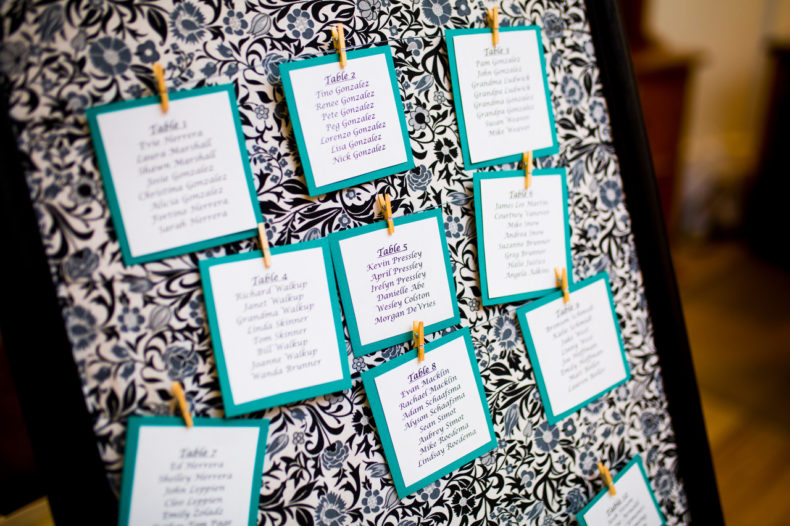 Table 1
Evie Herrera
Laura Marshall
Shawn Marshall
Josie Gonzalez
Christina Gonzalez
Alicia Gonzalez
Fortino Herrera
Sarah Herrera
Table 2
Tino Gonzalez
Renee Gonzalez
Pete Gonzalez
Peg Gonzalez
Lorenzo Gonzalez
Lisa Gonzalez
Nick Gonzalez
Table 3
Pam Gonzalez
John Gonzalez
Grandma Ludwick
Grandpa Ludwick
Grandma Gonzalez
Grandpa Gonzalez
Susan Weaver
Mike Weaver
Table 4
Richard Walkup
Janet Walkup
Grandma Walkup
Linda Skinner
Tom Skinner
Bill Walkup
Joanne Walkup
Wanda Brunner
Table 5
Kevin Pressley
April Pressley
Irelyn Pressley
Danielle Abe
Wesley Colston
Morgan DeVries
Table 6
James Lee Martin
Courtney
Mike Snow
Andrea Snow
Suzanne Brunner
Greg Brunner
Angela
Table 7
Ed Herrera
Shelley Herrera
John Leppien
Cleo Leppien
Emily
Table 8
Evan Macklin
Rachael Macklin
Adam Schaafsma
Alyson Schaafsma
Sean Simot
Aubrey Simot
Mike Roedema
Lindsay Roedema
Table 9
Schmidt
Katie Schmidt
Hoffman
Emily Hoffman
Miller
Lauren Miller
Table